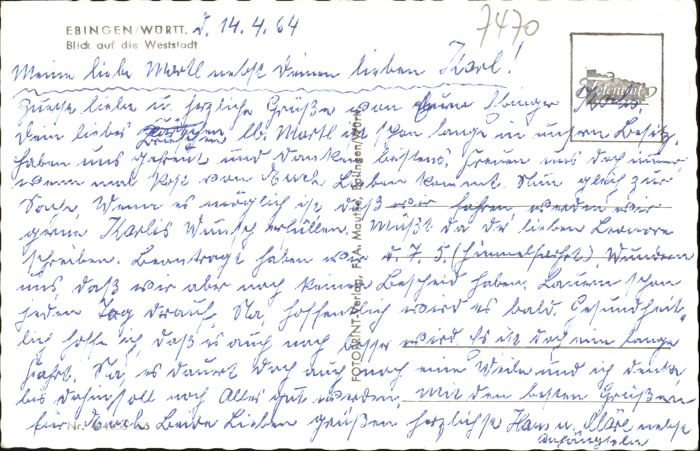 7470
EBINGEN/WÜRTT. d. 14.4.64
Blick auf die Weststadt
Meine liebe Martl nebst Deinem lieben Karl!
Zuerst liebe u. herzliche Grüße von Ebinger
Dein liebes lb. Martl ist schon lange in unsrem Besitz,
haben uns gefreut und danken bestens, freuen uns doch immer
wenn mal Post von Euch Lieben kommt. Nun gleich zur
Sache, Wenn es möglich ist daß wir fahren, werden wir
gerne Karlis Wunsch erfüllen. Mußt da der lieben Leonore
schreiben. Beantragt haben wir d. 7.5. (Himmelfahrt). Wundern
uns, daß wir aber noch keinen Bescheid haben. Lauern schon
jeden Tag drauf, Na, hoffentlich wird es bald. Gesundheit-
lich hoffe ich, daß es auch noch besser wird. Es ist doch eine lange
Fahrt. Na, es dauert doch auch noch eine Weile und ich denke,
bis dahin soll noch Alles gut werden. Mit den besten Grüßen
für Euch Beide Lieben grüßen herzlichst Hans u. nebst
Anhängseln
FOTOPRINT-Verlag, F. A. Mauthe, Ebingen/Württ.
Nr.